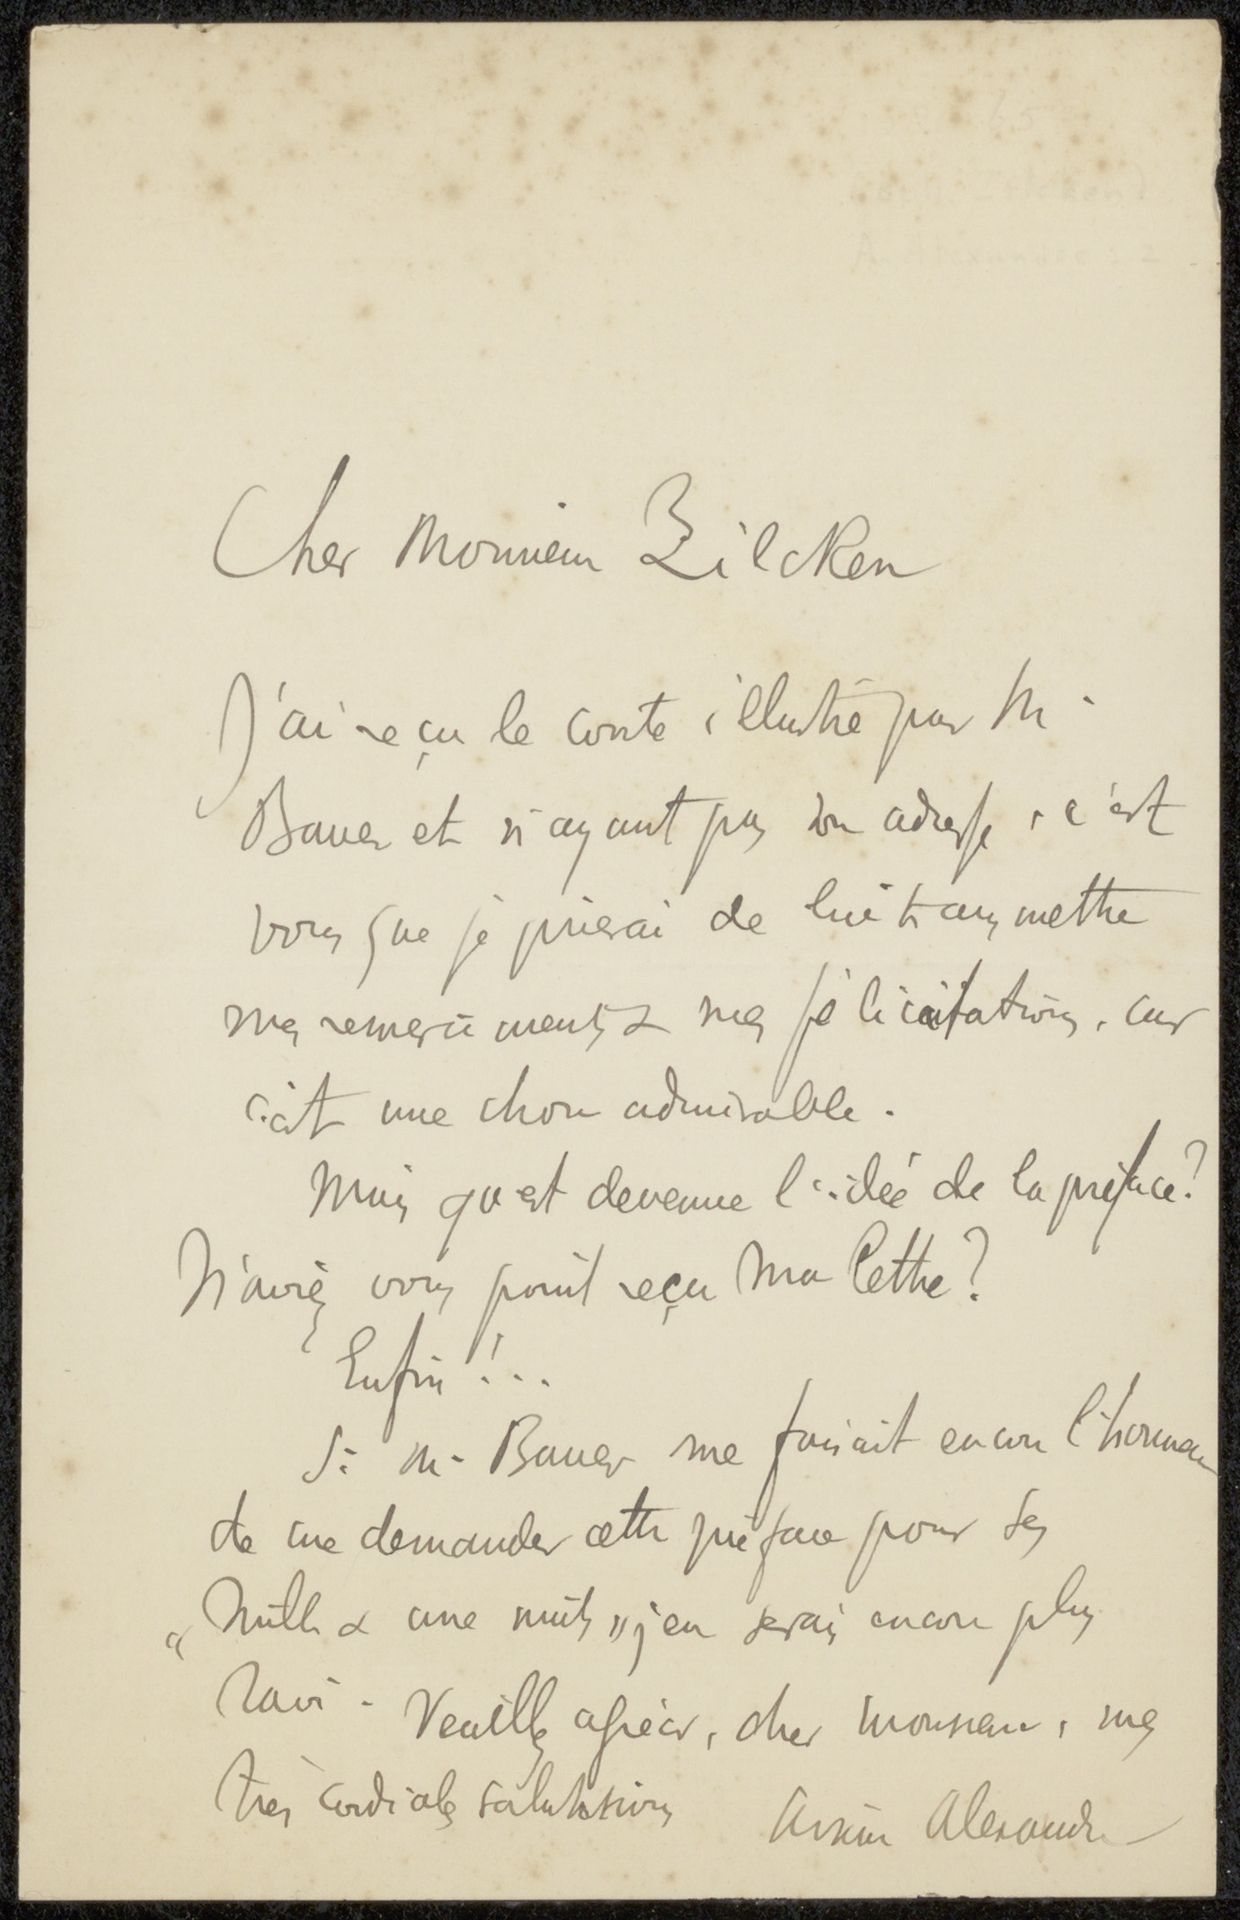 Cher Monsieur Zilcken
J'ai reçu le conte illustré par M.
Bauer et n'ayant pas son adresse, c'est
vous que je prierai de lui transmettre
mes remerciments & mes félicitations, car
c'est une chose admirable.
Mais qu'est devenue l'idée de la préface?
N'aviez vous point reçu ma lettre?
Enfin!...
Si M. Bauer me faisait encore l'honneur
de me demander cette préface pour ses
"Mille & une nuits" j'en serais encore plus
ravi. Veuillez agréer, cher monsieur, mes
très cordiales salutations
Arsène Alexandre